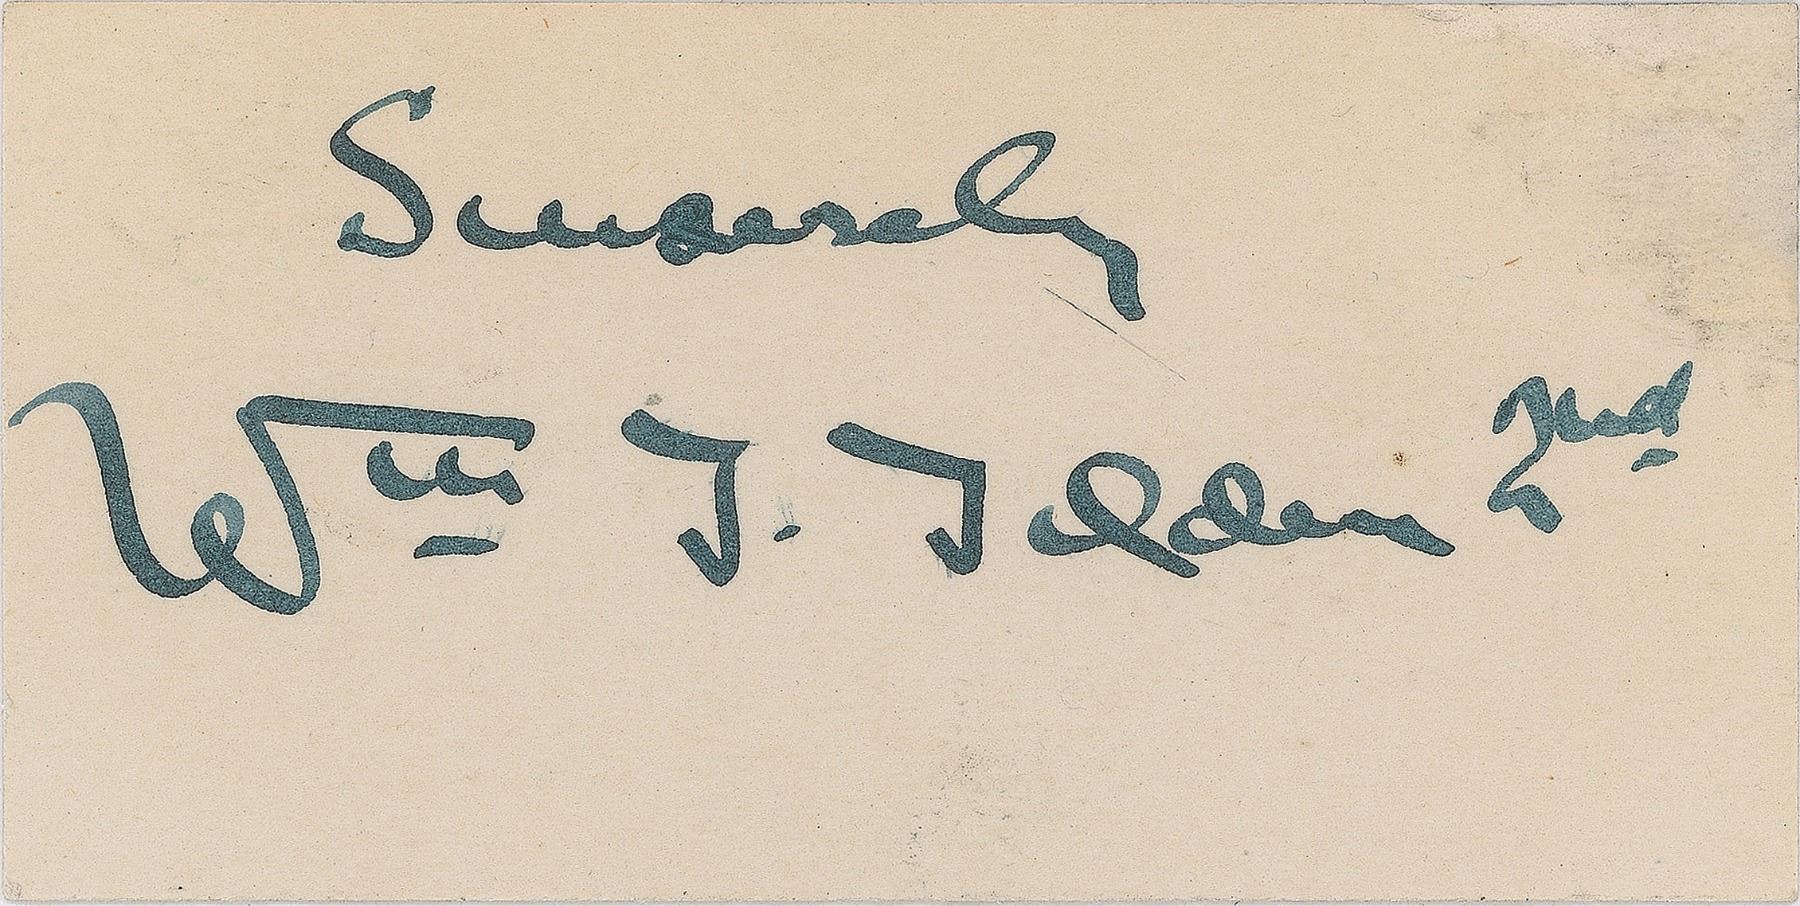 Sincerely
Wm T. Tilden 2nd